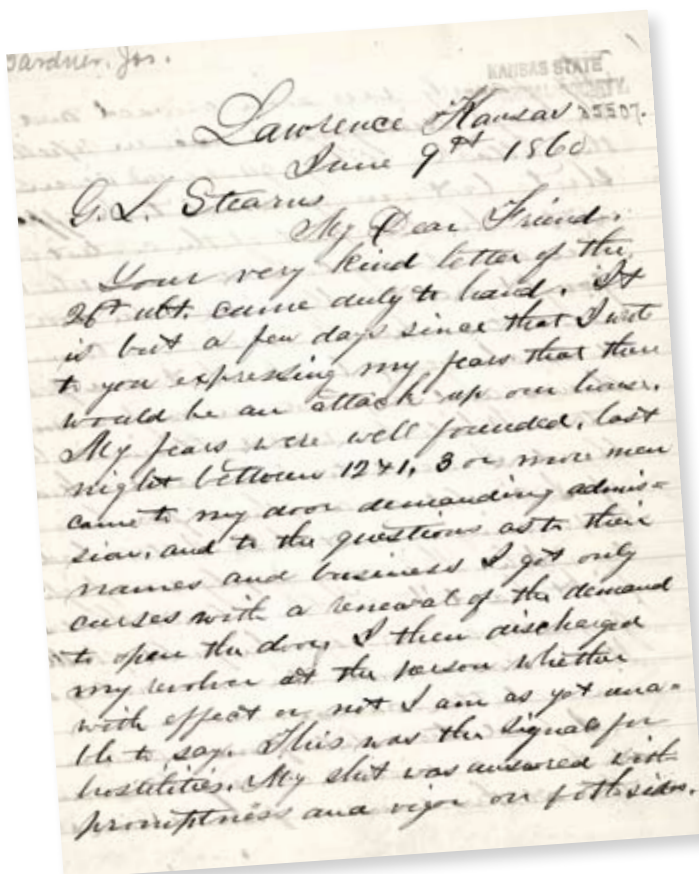 Gardner, Jos.
KANSAS STATE
SOCIETY.
Lawrence Kansas
June 9th 1860
G. L. Stearns
My Dear Friend.
Your very kind letter of the
26th ult. came duly to hand. It
is but a few days since that I wrote
to you expressing my fears that there
would be an attack up our house.
My fears were well founded, last
night between 12 & 1, 3 or more men
came to my door demanding admis=
sion, and to the questions as to their
names and business I got only
curses with a renewal of the demand
to open the door, I then discharged
my revolver at the person whether
with effect or not I am as yet una=
ble to say. This was the signal for
hostilities. My shot was answered with
promptness and vigor on both sides.